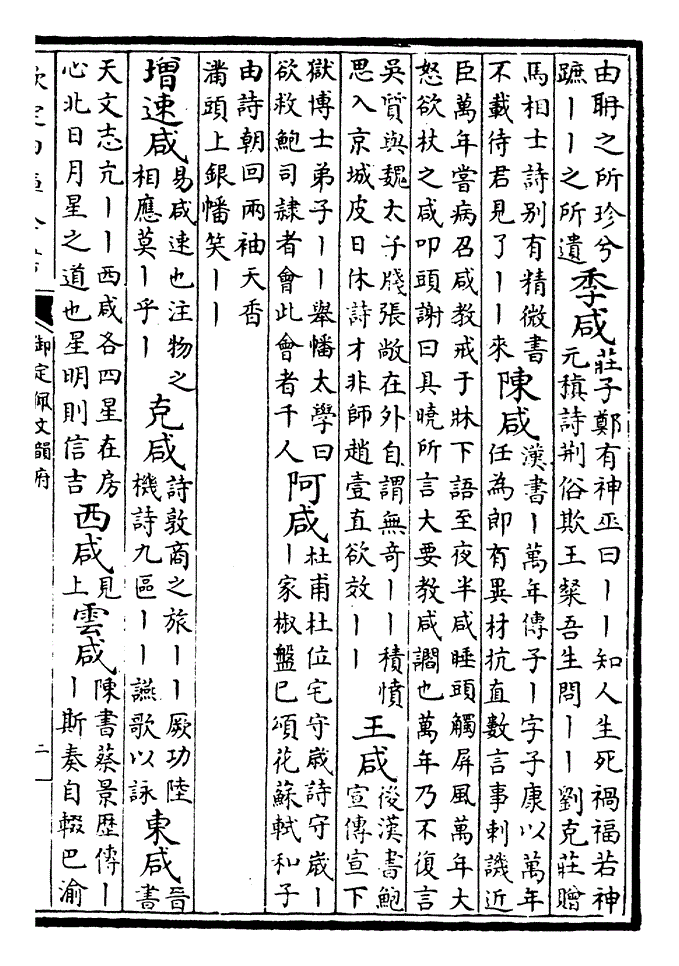 由聃之所珍兮蹠丨丨之所遺季咸莊子鄭有神巫曰丨丨知人生死禍福若神元稹詩荆俗欺王粲吾生問丨丨劉克莊贈
馬相士詩别有精微書不載待君見了丨丨來陳咸漢書丨萬年傳子丨字子康以萬年任為郎有異材抗直數言事刺譏近
臣萬年嘗病召咸教戒于牀下語至夜半咸睡頭觸屏風萬年大怒欲杖之咸叩頭謝曰具曉所言大要教咸讇也萬年乃不復言
吳質與魏太子牋張敞在外自謂無奇丨丨積憤思入京城皮日休詩才非師趙壹直欲效丨丨王咸後漢書鮑宣傳宣下
獄博士弟子丨丨舉幡太學曰欲救鮑司隷者會此會者千人阿咸杜甫杜位宅守嵗詩守嵗丨丨家椒盤已頌花蘇軾和子
由詩朝回兩袖天香滿頭上銀幡笑丨丨
增速咸易咸速也注物之相應莫丨乎丨克咸詩敦商之旅丨丨厥功陸機詩九區丨丨讌歌以詠東咸晉書
天文志亢丨丨西咸各四星在房心北日月星之道也星明則信吉西咸見上雲咸陳書蔡景歷傳丨丨斯奏自輟巴渝
欽定四庫全書
御定佩文韻府
二